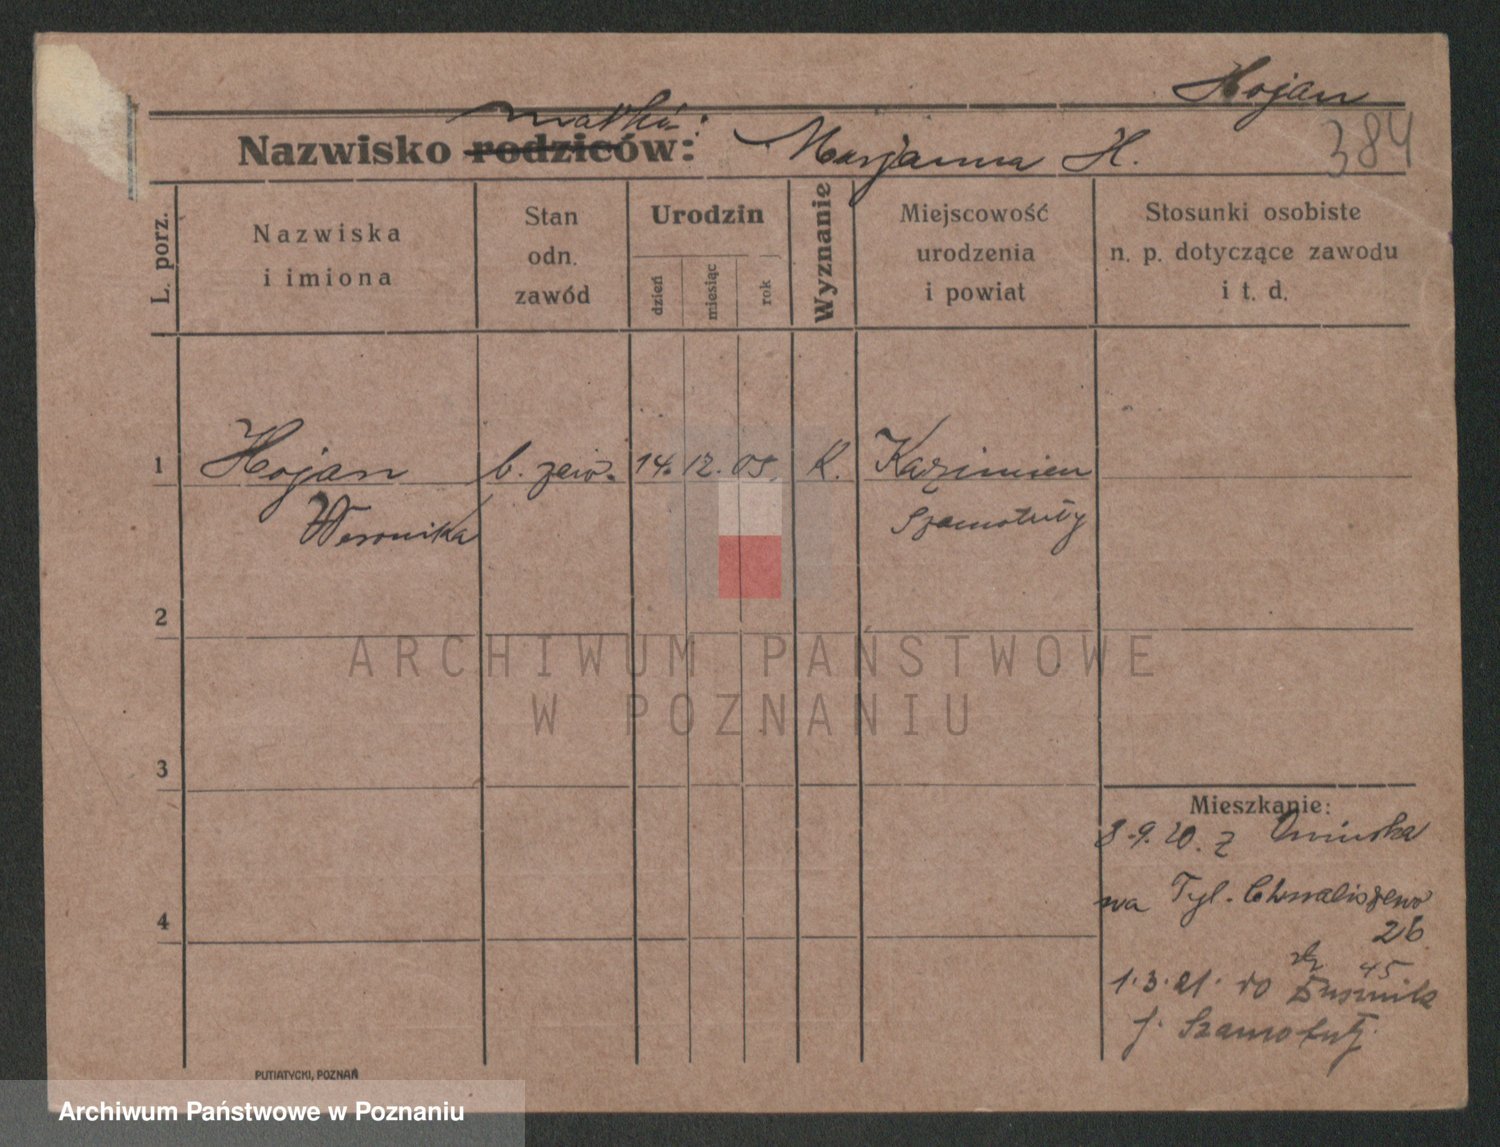 Hojan
matki:
Nazwisko rodziców: Marjanna H.
384
L. porz.
Nazwiska
i imiona
Stan
odn.
zawód
Urodzin
dzień
miesiąc
rok
Wyznanie
Miejscowość
urodzenia
i powiat
Stosunki osobiste
n. p. dotyczące zawodu
i t. d.
1 Hojan b. zaw. 14. 12. 05. K. Kazimierz
Weronika Szamotuły
2
3
4
Mieszkanie:
8.9.20. z
na Tyl. Chwaliszewo
26
45
1.3.21. do
p. Szamotuły
PUTIATYCKI, POZNAŃ
ARCHIWUM PAŃSTWOWE
W POZNANIU
Archiwum Państwowe w Poznaniu